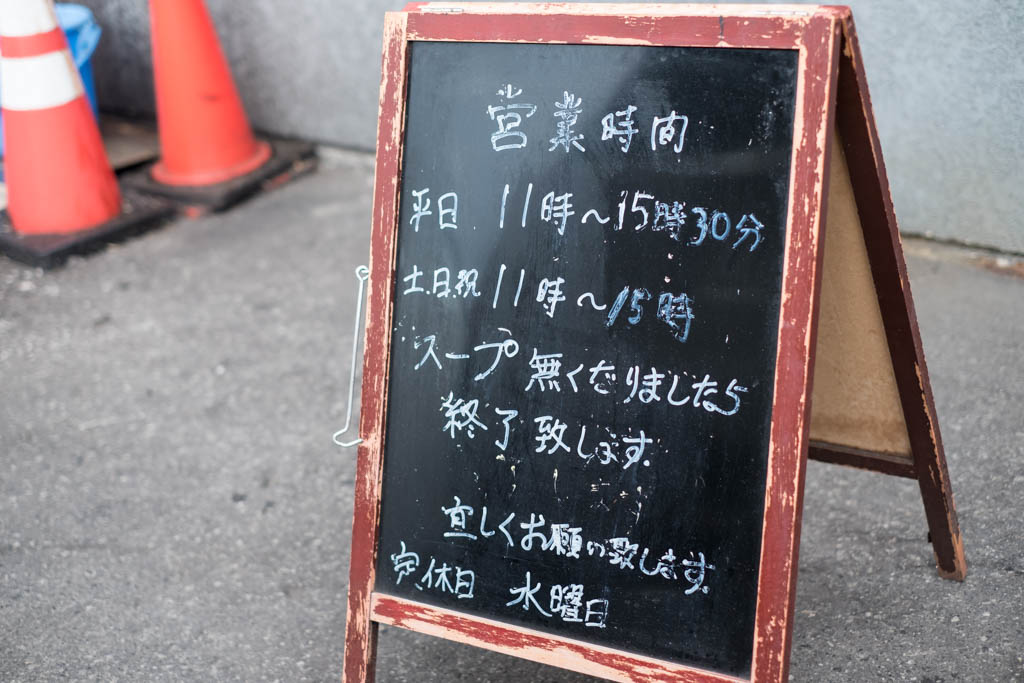 営業時間
平日 11時～15時30分
土.日.祝 11時～15時
スープ無くなりましたら
終了致します.
宜しくお願い致します.
定休日 水曜日